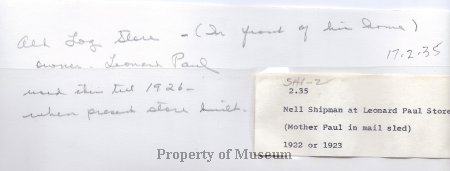 Old Log Store - (In front of his home)
owner - Leonard Paul
used this till 1926 -
when present store built.
17.2.35
SHI-2
2.35
Nell Shipman at Leonard Paul Store
(Mother Paul in mail sled)
1922 or 1923
Property of Museum